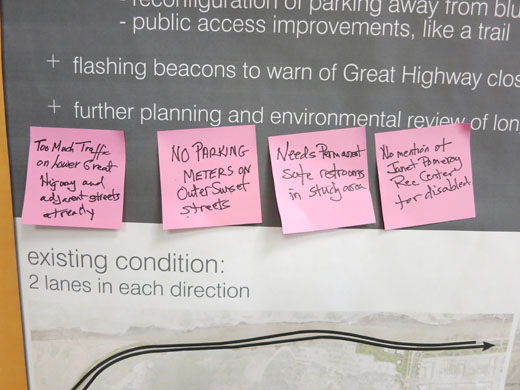 - reconfiguration of parking away from blu
- public access improvements, like a trail
+ flashing beacons to warn of Great Highway clos
+ further planning and environmental review of lon
Too Much Traffic
on Lower Great
Higway and
adjacent streets
already
NO PARKING
METERS ON
Outer Sunset
streets
Needs Permanent
safe restrooms
in study area
No mention of
Janet Pomeroy
Rec Center
for disabled
existing condition:
2 lanes in each direction